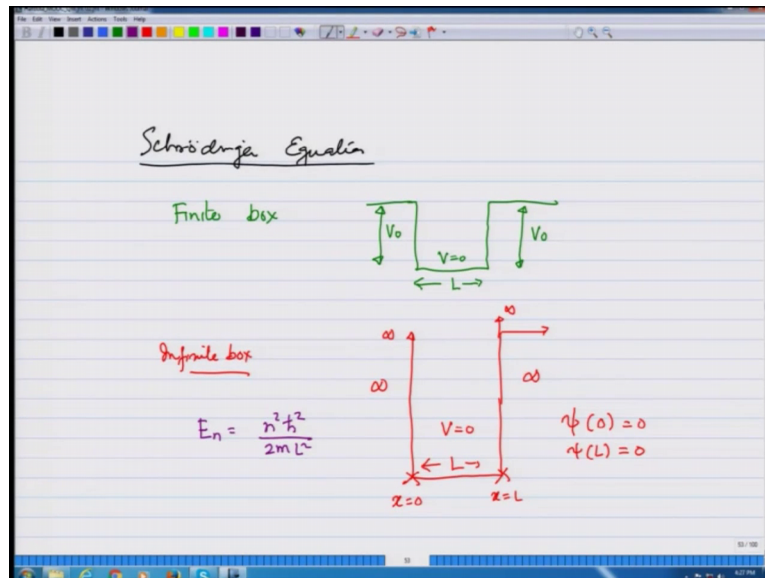 File Edit View Insert Actions Tools Help
Schrödinger Equation
Finite box
V₀
V₀
V=0
← L →
∞
∞
Infinite box
∞
∞
V=0
← L →
x=0
x=L
Eₙ = n²ħ² / 2mL²
ψ(0) = 0
ψ(L) = 0
53 / 100
53
4:27 PM